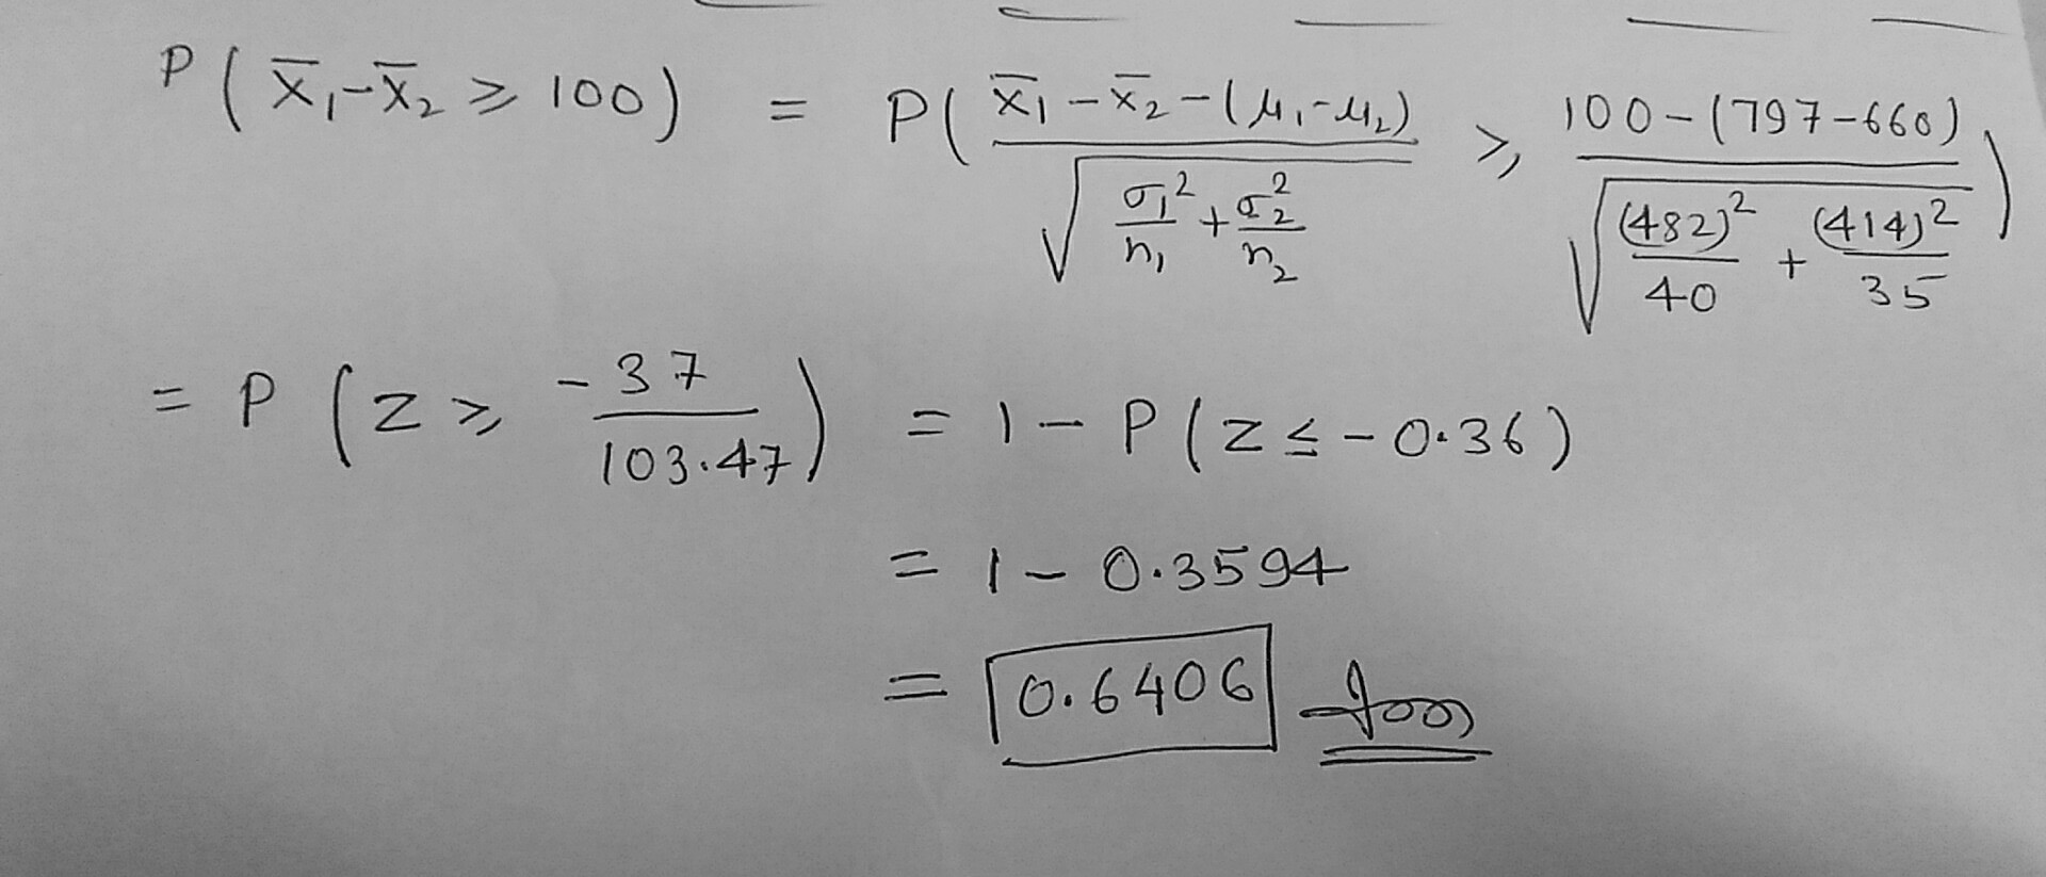 P(x̄₁-x̄₂ ≥ 100) = P( (x̄₁-x̄₂-(μ₁-μ₂)) / √(σ₁²/n₁ + σ₂²/n₂) ≥ (100-(797-660)) / √((482)²/40 + (414)²/35) )
= P(z ≥ -37/103.47) = 1 - P(z ≤ -0.36)
= 1 - 0.3594
= 0.6406